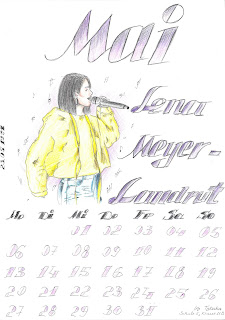 Mai
Lena
Meyer-
Landrut
Mo Di Mi Do Fr Sa So
01 02 03 04 05
06 07 08 09 10 11 12
13 14 15 16 17 18 19
20 21 22 23 24 25 26
27 28 29 30 31